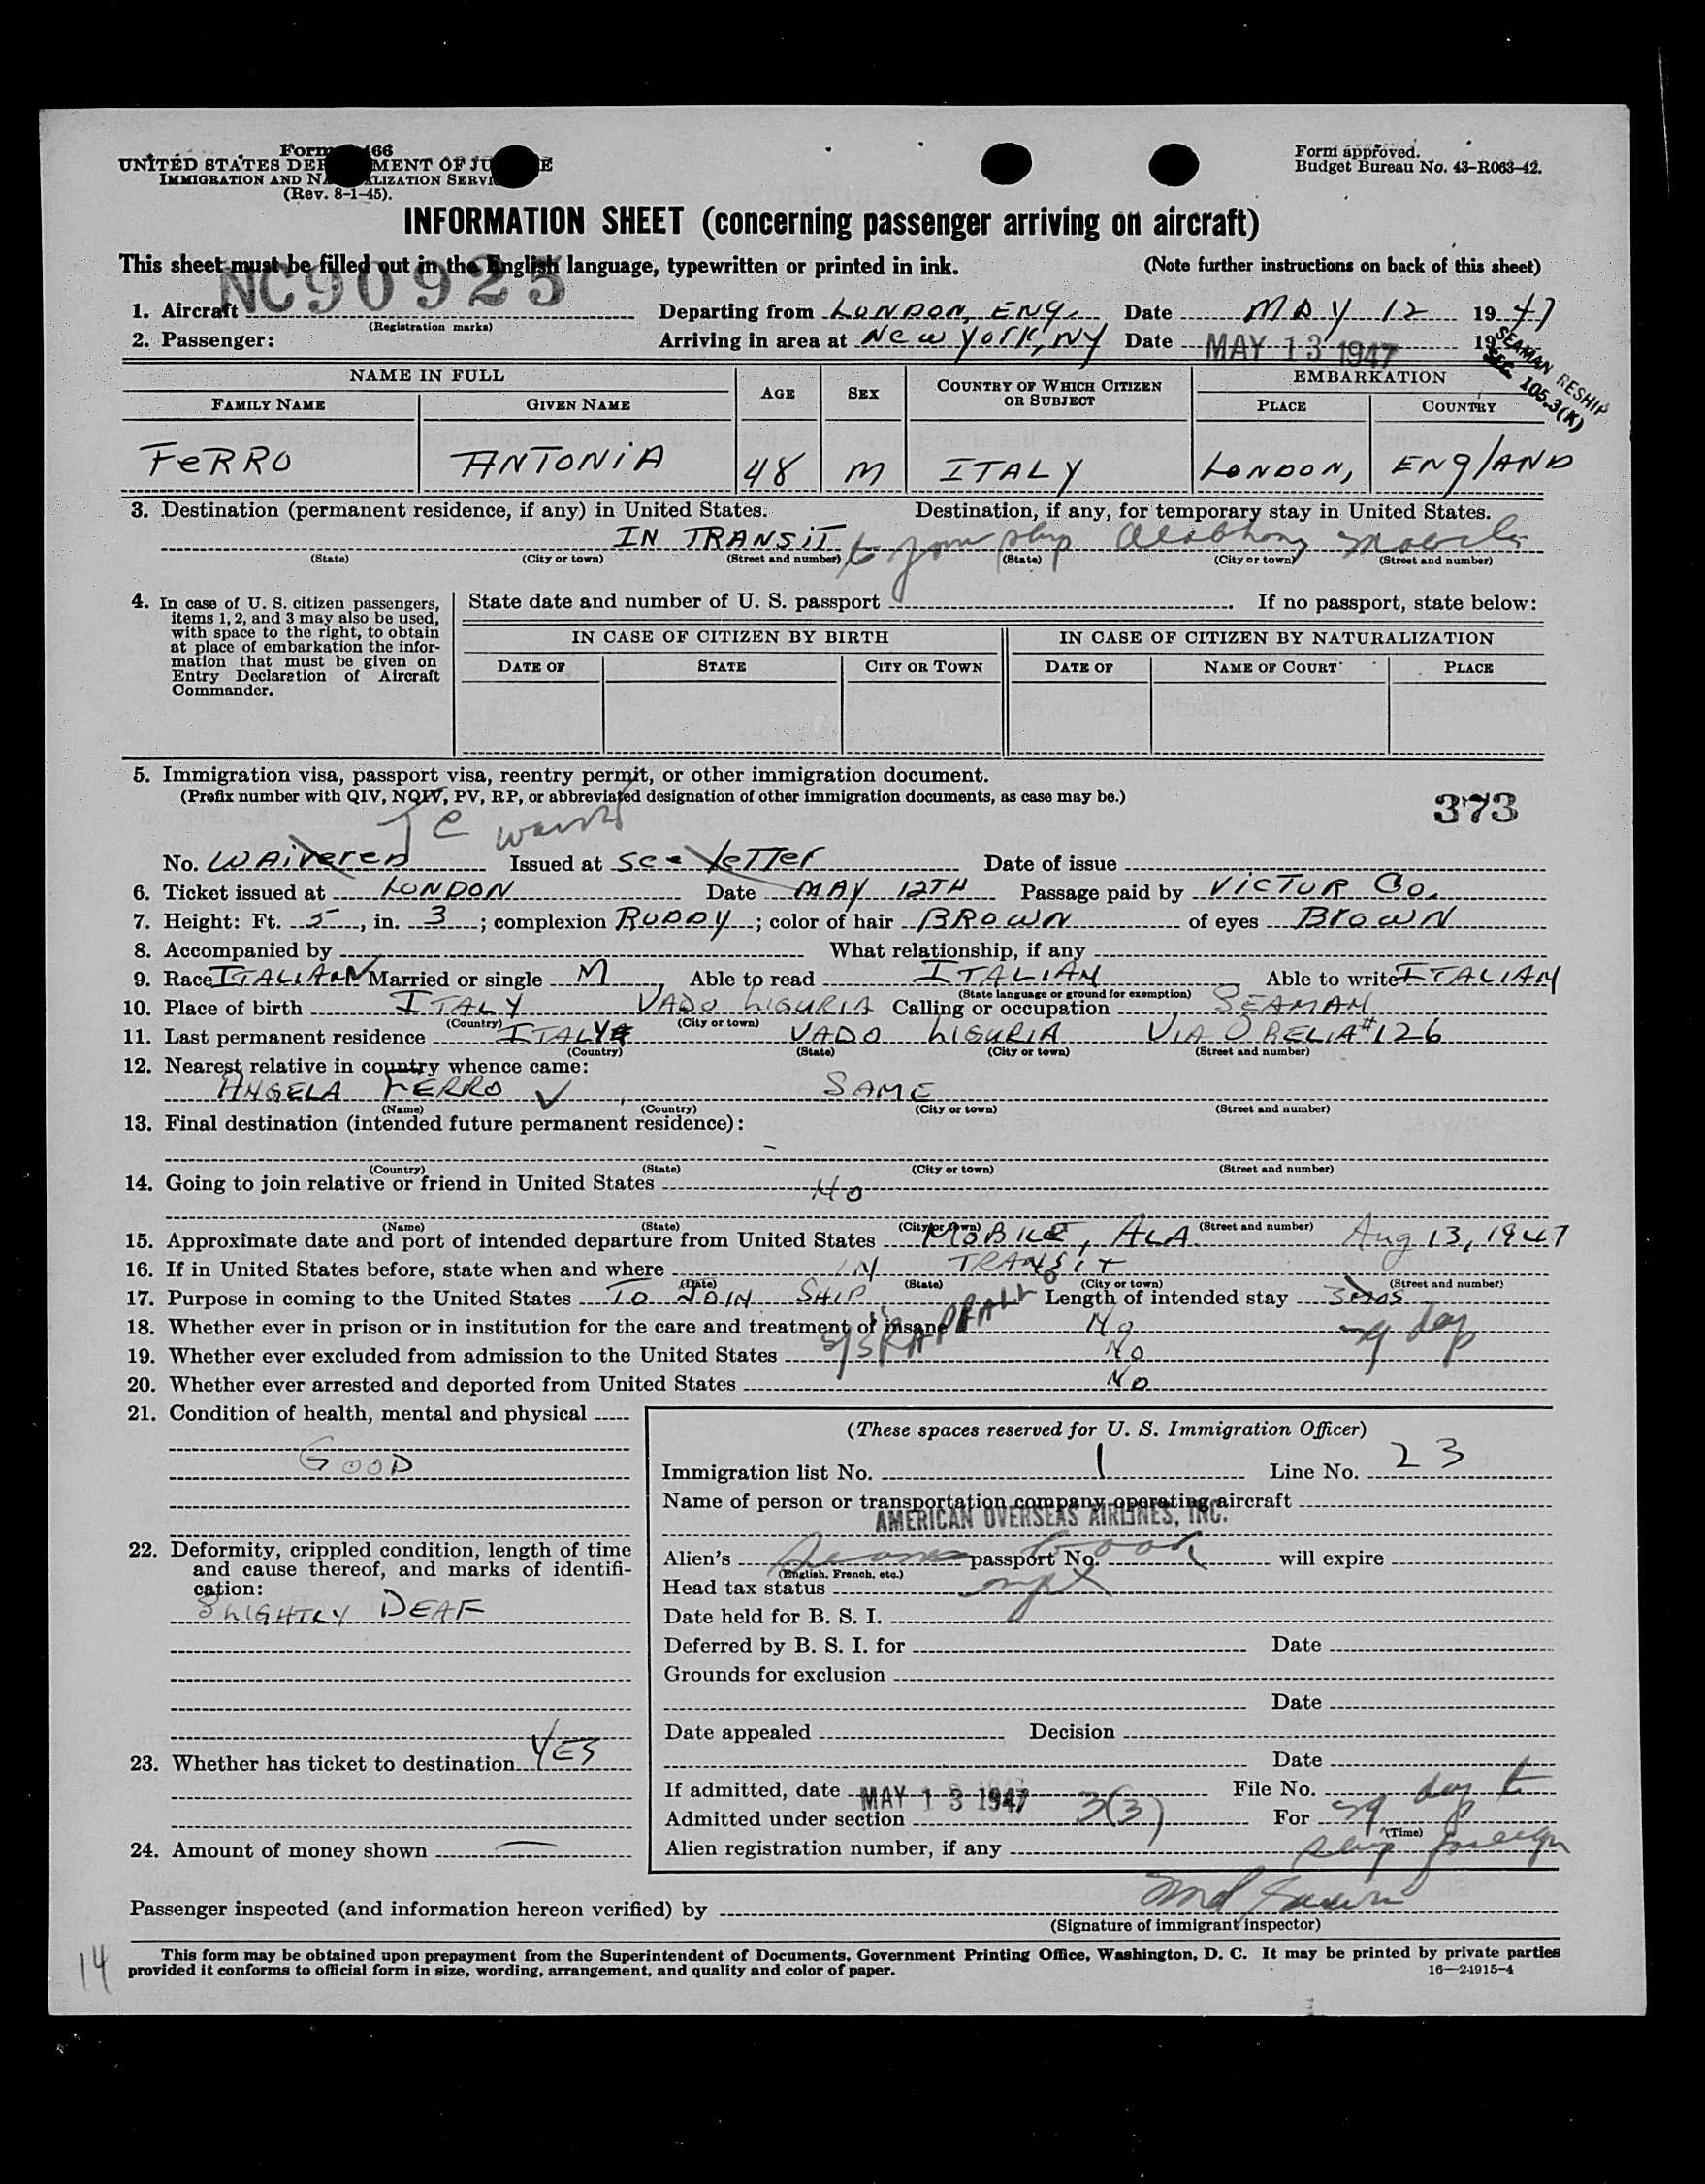 Form 466
UNITED STATES DEPARTMENT OF JUSTICE
IMMIGRATION AND NATURALIZATION SERVICE
(Rev. 8-1-45).
Form approved.
Budget Bureau No. 43-R063-42.
INFORMATION SHEET (concerning passenger arriving on aircraft)
This sheet must be filled out in the English language, typewritten or printed in ink. (Note further instructions on back of this sheet)
NC90925
1. Aircraft (Registration marks) Departing from LONDON, ENG. Date MAY 12 1947
2. Passenger: Arriving in area at New York, NY Date MAY 13 1947 19
SEAMAN RESHIP
SEC. 105.3(K)
NAME IN FULL AGE SEX COUNTRY OF WHICH CITIZEN OR SUBJECT EMBARKATION
FAMILY NAME GIVEN NAME PLACE COUNTRY
FERRO ANTONIA 48 M ITALY LONDON, ENGLAND
3. Destination (permanent residence, if any) in United States. Destination, if any, for temporary stay in United States.
IN TRANSIT to join ship
(State) (City or town) (Street and number) (State) (City or town) (Street and number)
4. In case of U. S. citizen passengers, items 1, 2, and 3 may also be used, with space to the right, to obtain at place of embarkation the information that must be given on Entry Declaration of Aircraft Commander.
State date and number of U. S. passport . If no passport, state below:
IN CASE OF CITIZEN BY BIRTH IN CASE OF CITIZEN BY NATURALIZATION
DATE OF STATE CITY OR TOWN DATE OF NAME OF COURT PLACE
5. Immigration visa, passport visa, reentry permit, or other immigration document.
(Prefix number with QIV, NQIV, PV, RP, or abbreviated designation of other immigration documents, as case may be.)
373
No. WAIVERED Issued at See Letter Date of issue
6. Ticket issued at LONDON Date MAY 12TH Passage paid by VICTUR Co.
7. Height: Ft. 5, in. 3; complexion RUDDY; color of hair BROWN of eyes BROWN
8. Accompanied by What relationship, if any
9. Race ITALIAN Married or single M Able to read ITALIAN Able to write ITALIAN
(State language or ground for exemption)
10. Place of birth ITALY VADO LIGURIA Calling or occupation SEAMAN
(Country) (City or town)
11. Last permanent residence ITALY VADO LIGURIA VIA ORELIA #126
(Country) (State) (City or town) (Street and number)
12. Nearest relative in country whence came:
ANGELA FERRO SAME
(Name) (Country) (City or town) (Street and number)
13. Final destination (intended future permanent residence):
-
(Country) (State) (City or town) (Street and number)
14. Going to join relative or friend in United States NO
(Name) (State) (City or town) (Street and number)
15. Approximate date and port of intended departure from United States MOBILE, ALA. Aug 13, 1947
16. If in United States before, state when and where IN TRANSIT
(Date) (State) (City or town) (Street and number)
17. Purpose in coming to the United States TO JOIN SHIP Length of intended stay
18. Whether ever in prison or in institution for the care and treatment of insane No
19. Whether ever excluded from admission to the United States NO
20. Whether ever arrested and deported from United States NO
21. Condition of health, mental and physical
GOOD
22. Deformity, crippled condition, length of time and cause thereof, and marks of identification:
SLIGHTLY DEAF
23. Whether has ticket to destination YES
24. Amount of money shown —
(These spaces reserved for U. S. Immigration Officer)
Immigration list No. 1 Line No. 23
Name of person or transportation company operating aircraft
AMERICAN OVERSEAS AIRLINES, INC.
Alien's passport No. book will expire
(English, French, etc.)
Head tax status
Date held for B. S. I.
Deferred by B. S. I. for Date
Grounds for exclusion
Date
Date appealed Decision
Date
If admitted, date MAY 13 1947 File No.
Admitted under section 3(3) For 29 days to
(Time)
Alien registration number, if any ship foreign
Passenger inspected (and information hereon verified) by
(Signature of immigrant inspector)
14
This form may be obtained upon prepayment from the Superintendent of Documents, Government Printing Office, Washington, D. C. It may be printed by private parties
provided it conforms to official form in size, wording, arrangement, and quality and color of paper. 16—24915-4